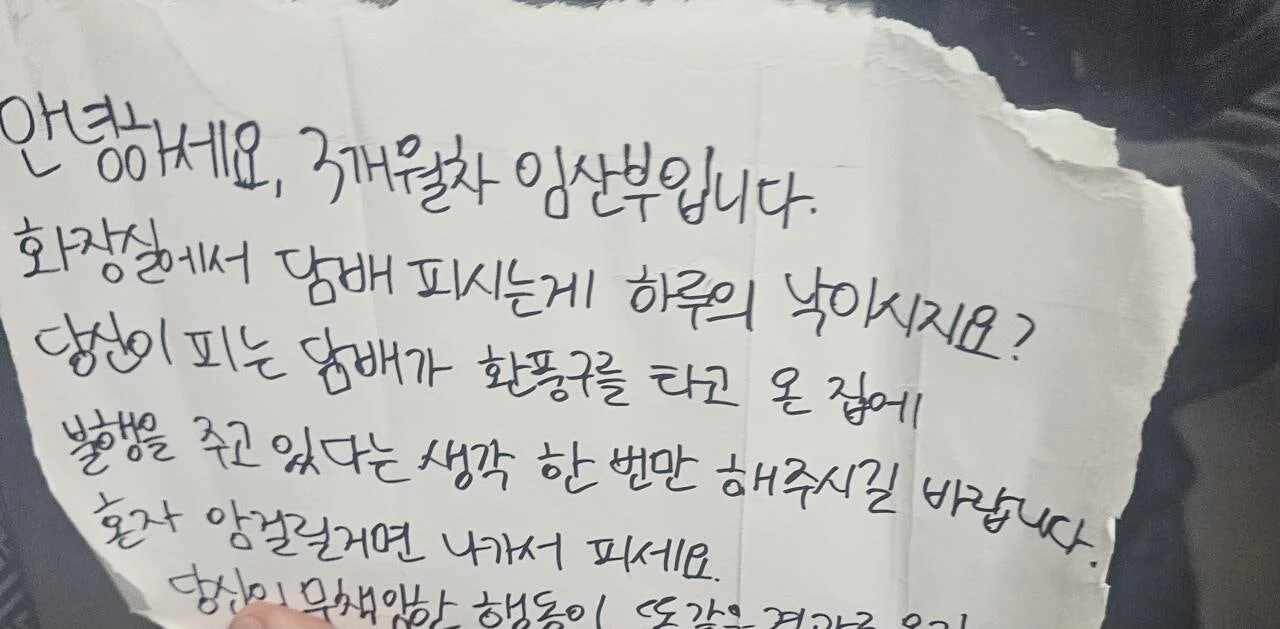 안녕하세요, 3개월차 임산부입니다.
화장실에서 담배 피시는게 하루의 낙이시지요?
당신이 피는 담배가 환풍구를 타고 온 집에
불행을 주고 있다는 생각 한 번만 해주시길 바랍니다.
혼자 암걸릴거면 나가서 피세요.
당신의 무책임한 행동이 똑같은 결과로